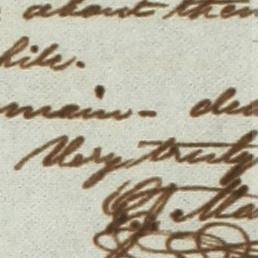 about them
hile.
main - dea
Very truly
Ma